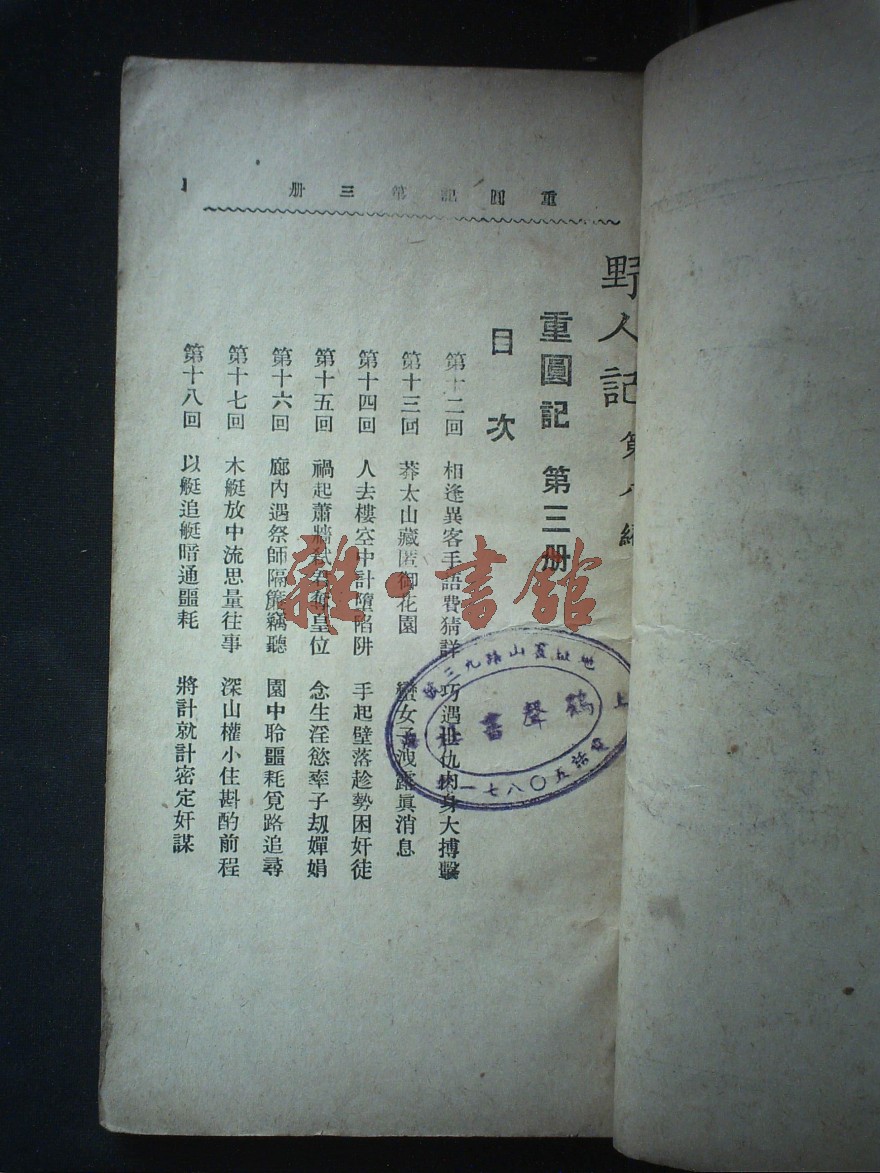 重圓記第三册
1
野人記 第八編
重圓記 第三册
目次
第十二回 相逢異客手語費猜詳 巧遇世仇肉身大搏擊
第十三回 莽太山藏匿御花園 蠻女子洩露眞消息
第十四回 人去樓空中計墮陷阱 手起壁落趁勢困奸徒
第十五回 禍起蕭牆弒君奪皇位 念生淫慾率子刼嬋娟
第十六回 廊內遇祭師隔簾竊聽 園中聆噩耗覓路追尋
第十七回 木艇放中流思量往事 深山權小住斟酌前程
第十八回 以艇追艇暗通噩耗 將計就計密定奸謀
雜·書館
地址 山路九三
上海鶴聲書社
電話五〇八七一